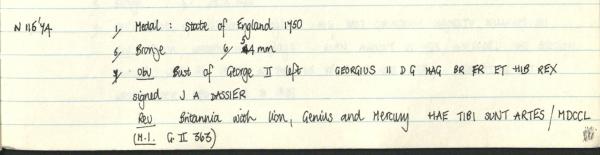 N 116'74 1, Medal : State of England 1750
5, Bronze 6, 54 mm
7, Obv Bust of George II left GEORGIUS II D G MAG BR FR ET HIB REX
signed J A DASSIER
Rev Britannia with lion, Genius and Mercury HAE TIBI SUNT ARTES / MDCCL
(M.I. G II 363)